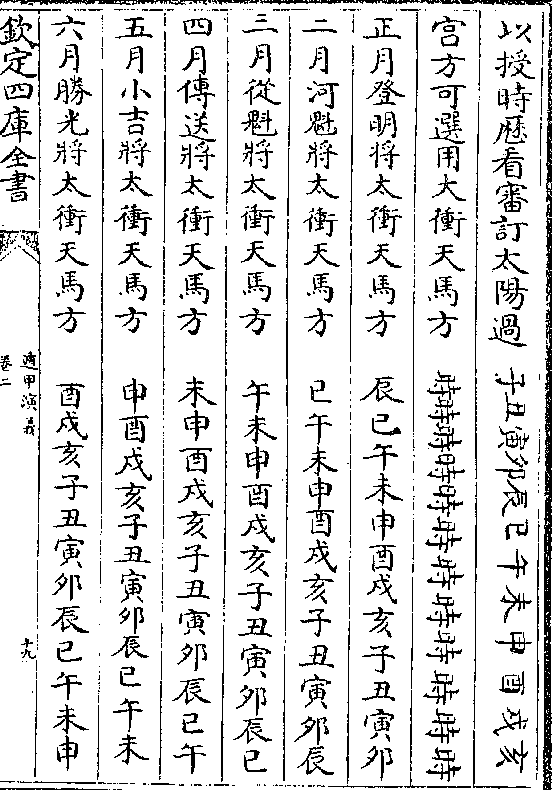 以授時厯看審訂太陽過 子丑寅卯辰巳午未申酉戌亥
宫方可選用大衝天馬方 時時時時時時時時時時時時
正月登明將太衝天馬方 辰巳午未申酉戌亥子丑寅卯
二月河魁將太衝天馬方 巳午未申酉戌亥子丑寅卯辰
三月從魁將太衝天馬方 午未申酉戌亥子丑寅卯辰巳
四月傳送將太衝天馬方 未申酉戌亥子丑寅卯辰巳午
五月小吉將太衝天馬方 申酉戌亥子丑寅卯辰巳午未
六月勝光將太衝天馬方 酉戌亥子丑寅卯辰巳午未申
欽定四庫全書
遁甲演義
卷二
十九